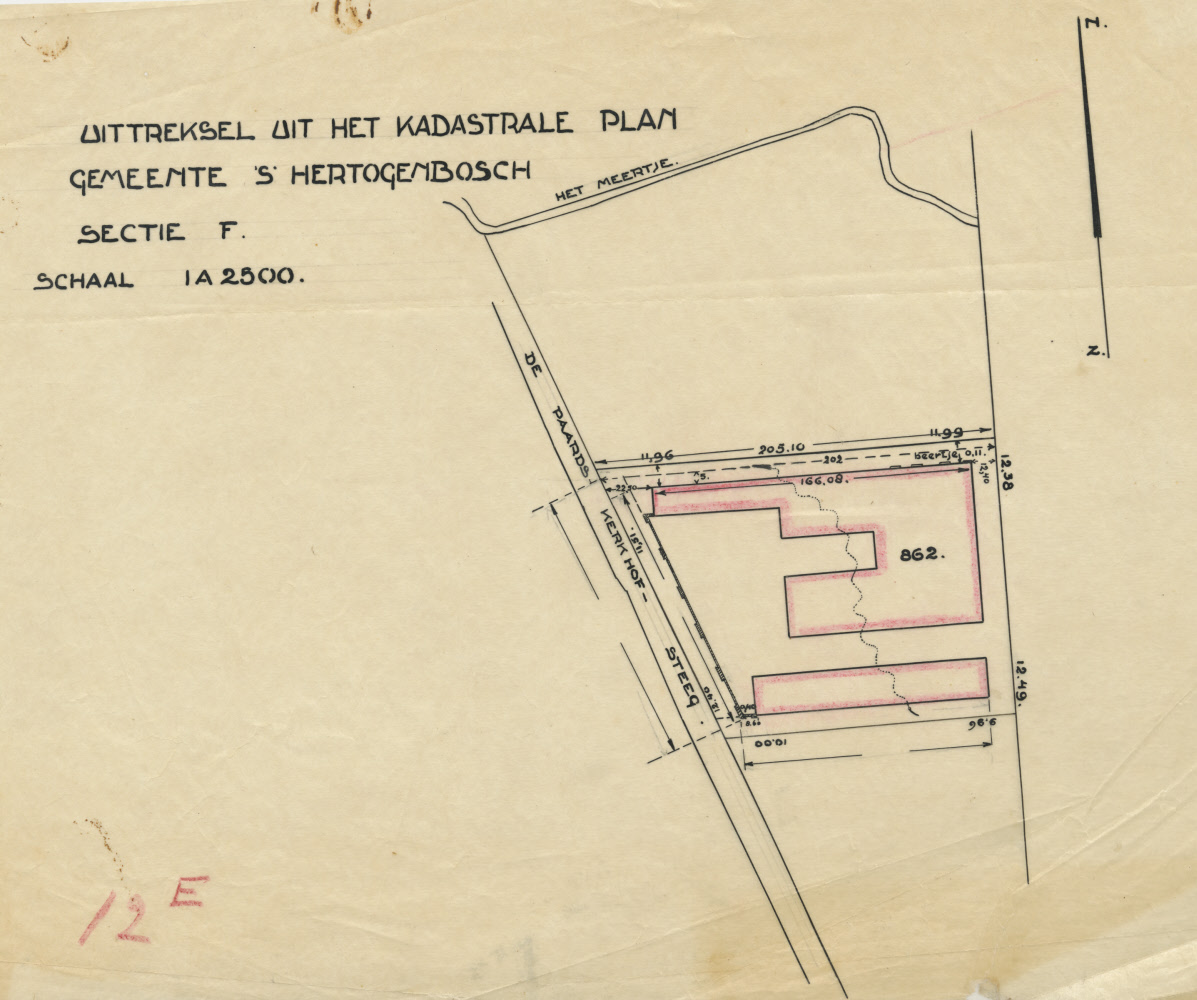 UITTREKSEL UIT HET KADASTRALE PLAN
GEMEENTE 'S' HERTOGENBOSCH
SECTIE F.
SCHAAL 1 A 2500.
N.
Z.
HET MEERTJE.
DE PAARDS KERKHOF-STEEG.
11,99
205.10
11,96
202
beertje 0,11.
12,40
12,38
5.
22,50
166,08.
11,51.
862.
12.49.
12,40
9,96
10,00
12 E